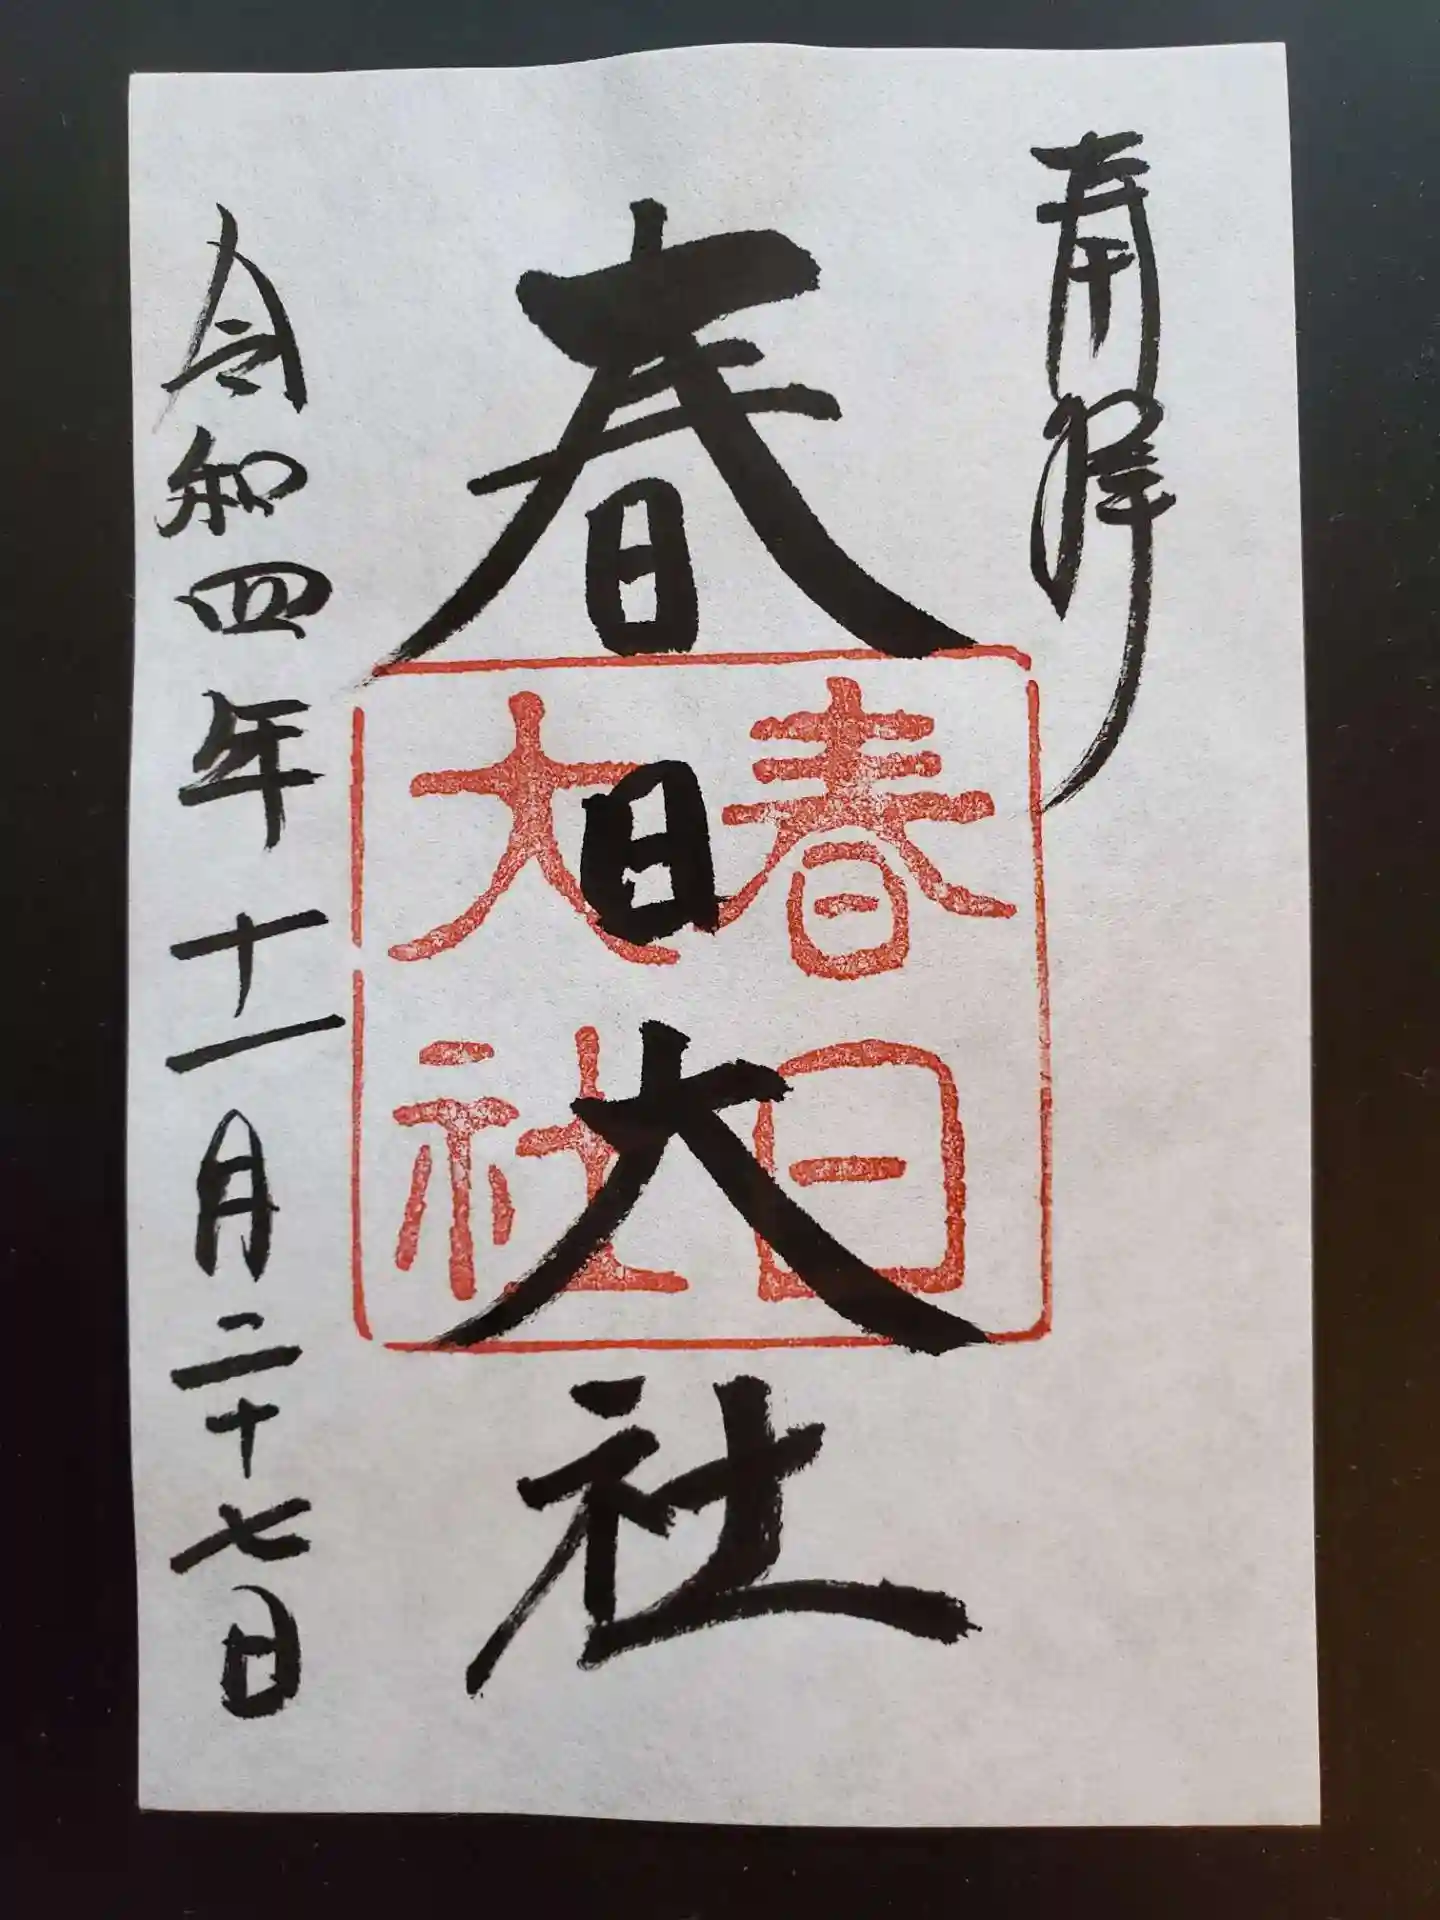 奉拝
春日大社
春日
大社
令和四年十一月二十七日